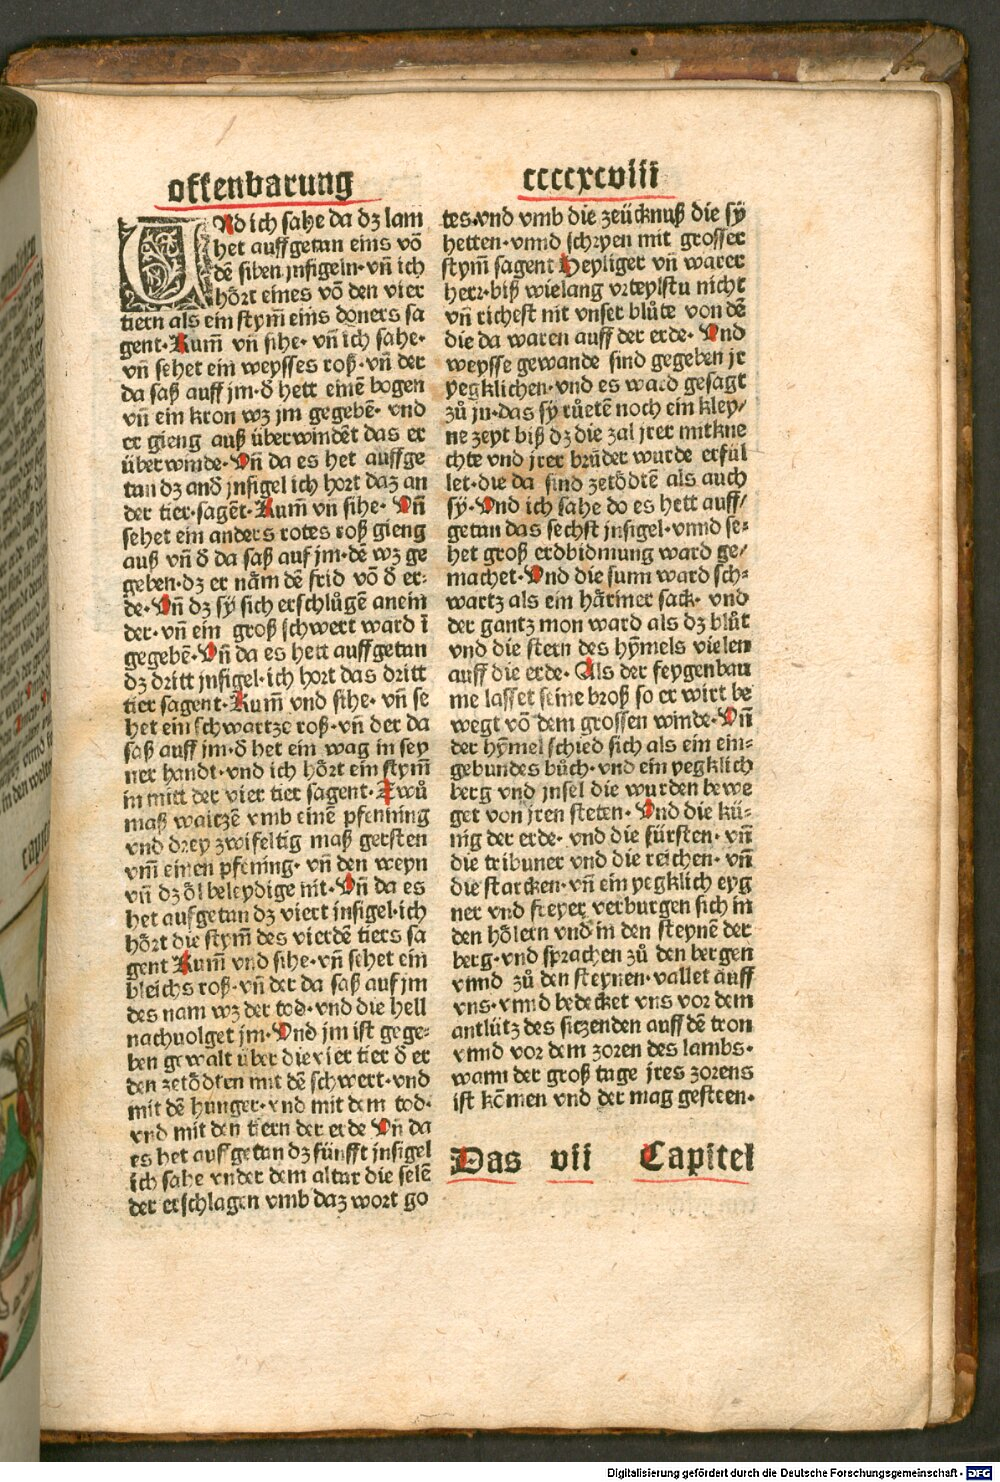 offenbarung
ccccxcviii
UNd ich sahe da dz lam
het auffgetan eins võ
dẽ siben jnsigeln· vñ ich
hört eines võ den vier
tiern als ein stym̃ eins doners sa
gent· Kum̃ vñ sihe· vñ ich sahe·
vñ sehet ein weysses roß· vñ der
da saß auff jm· d̕ hett einẽ bogen
vñ ein kron wz jm gegebẽ· vnd
er gieng auß überwindẽt das er
überwinde· Vñ da es het auffge
tan dz and̕ jnsigel ich hort daz an
der tier· sagẽt· Kum̃ vñ sihe· Vñ
sehet ein anders rotes roß gieng
auß vñ d̕ da saß auf jm· dẽ wz ge
geben· dz er näm dẽ frid võ d̕ er⸗
de· Vñ dz sÿ sich erschlůgẽ anein
der· vñ ein groß schwert ward ĩ
gegebẽ· Vñ da es hett auffgetan
dz dritt jnsigel· ich hort das dritt
tier sagent· Kum̃ vnd sihe· vñ se
het ein schwartze roß· vñ der da
saß auff jm· d̕ het ein wag in sey
ner handt· vnd ich hört ein stym̃
in mitt der vier tier sagent· Zwů
maß waitzẽ vmb einẽ pfenning
vnd drey zwifeltig maß gersten
vm̃ einen pfening· vñ den weyn
vñ dz öl beleydige nit· Vñ da es
het aufgetan dz viert jnsigel· ich
hört die stym̃ des vierdẽ tiers sa
gent Kum̃ vnd sihe· vñ sehet ein
bleichs roß· vñ der da saß auf jm
des nam wz der tod· vnd die hell
nachuolget jm· Vnd jm ist gege⸗
ben gewalt über die vier tier d̕ er
den zetödten mit dẽ schwert· vnd
mit dẽ hunger· vnd mit dem tod·
vnd mit den tiern der erde Vñ da
es het auffgetan dz fünfft jnsigel
ich sahe vnder dem altar die selẽ
der erschlagen vmb daz wort go
tes· vnd vmb die zeücknuß die sÿ
hetten· vnnd schryen mit grosser
stym̃ sagent Heyliger vñ warer
herr· biß wielang vrteylstu nicht
vñ richest nit vnser blůte von dẽ
die da waren auff der erde· Vnd
weysse gewande sind gegeben jr
yegklichen· vnd es ward gesagt
zů jn· das sÿ růetẽ noch ein kley/
ne zeyt biß dz die zal jrer mitkne
chte vnd jrer brüder wurde erfül
let· die da sind zetödtẽ als auch
sÿ· Vnd ich sahe do es hett auff/
getan das sechst jnsigel· vnnd se⸗
het groß erdbidmung ward ge/
machet· Vnd die sunn ward sch⸗
wartz als ein häriner sack· vnd
der gantz mon ward als dz blůt
vnd die stern des hÿmels vielen
auff die erde· Als der feygenbau
me lasset seine broß so er wirt be
wegt võ dem grossen winde· Vñ
der hÿmel schied sich als ein ein⸗
gebundes bůch· vnd ein yegklich
berg vnd jnsel die wurden bewe
get von jren steten· Vnd die kü⸗
nig der erde· vnd die fürsten· vñ
die tribuner vnd die reichen· vñ
die starcken· vñ ein yegklich eyg
ner vnd freyer verburgen sich in
den hölern vnd in den steynẽ der
berg· vnd sprachen zů den bergen
vnnd zů den steynen· vallet auff
vns· vnnd bedecket vns vor dem
antlütz des sitzenden auff dẽ tron
vnnd vor dem zoren des lambs·
wann der groß tage jres zorens
ist kõmen vnd der mag gesteen·
Das vii Capitel
Digitalisierung gefördert durch die Deutsche Forschungsgemeinschaft - DFG